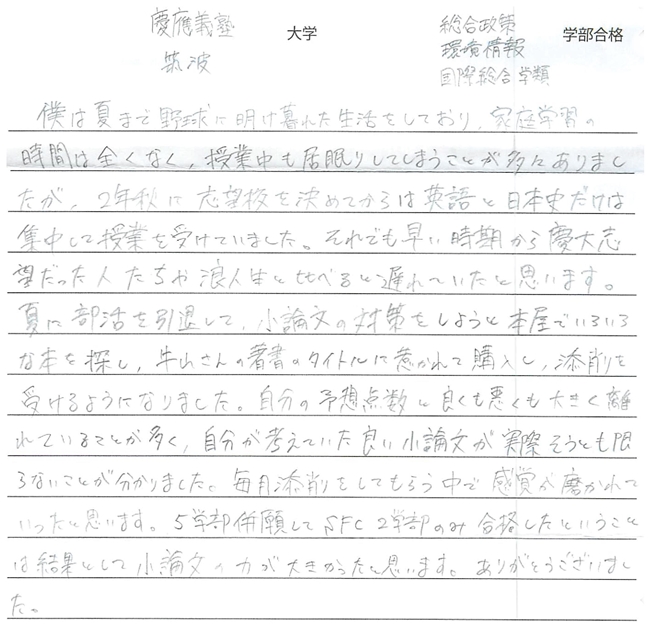 慶應義塾 大学 総合政策 学部合格
筑波 環境情報
国際総合学類
僕は夏まで野球に明け暮れた生活をしており、家庭学習の
時間は全くなく、授業中も居眠りしてしまうことが多々ありまし
たが、2年秋に志望校を決めてからは英語と日本史だけは
集中して授業を受けていました。それでも早い時期から慶大志
望だった人たちや浪人生と比べると遅れていたと思います。
夏に部活を引退して、小論文の対策をしようと本屋でいろいろ
な本を探し、牛山さんの著書のタイトルに惹かれて購入し、添削を
受けるようになりました。自分の予想点数と良くも悪くも大きく離
れていることが多く、自分が考えていた良い小論文が実際そうとも限
らないことが分かりました。毎月添削をしてもらう中で感覚が磨かれて
いったと思います。5学部併願してSFC2学部のみ合格したということ
は結果として小論文の力が大きかったと思います。ありがとうございまし
た。